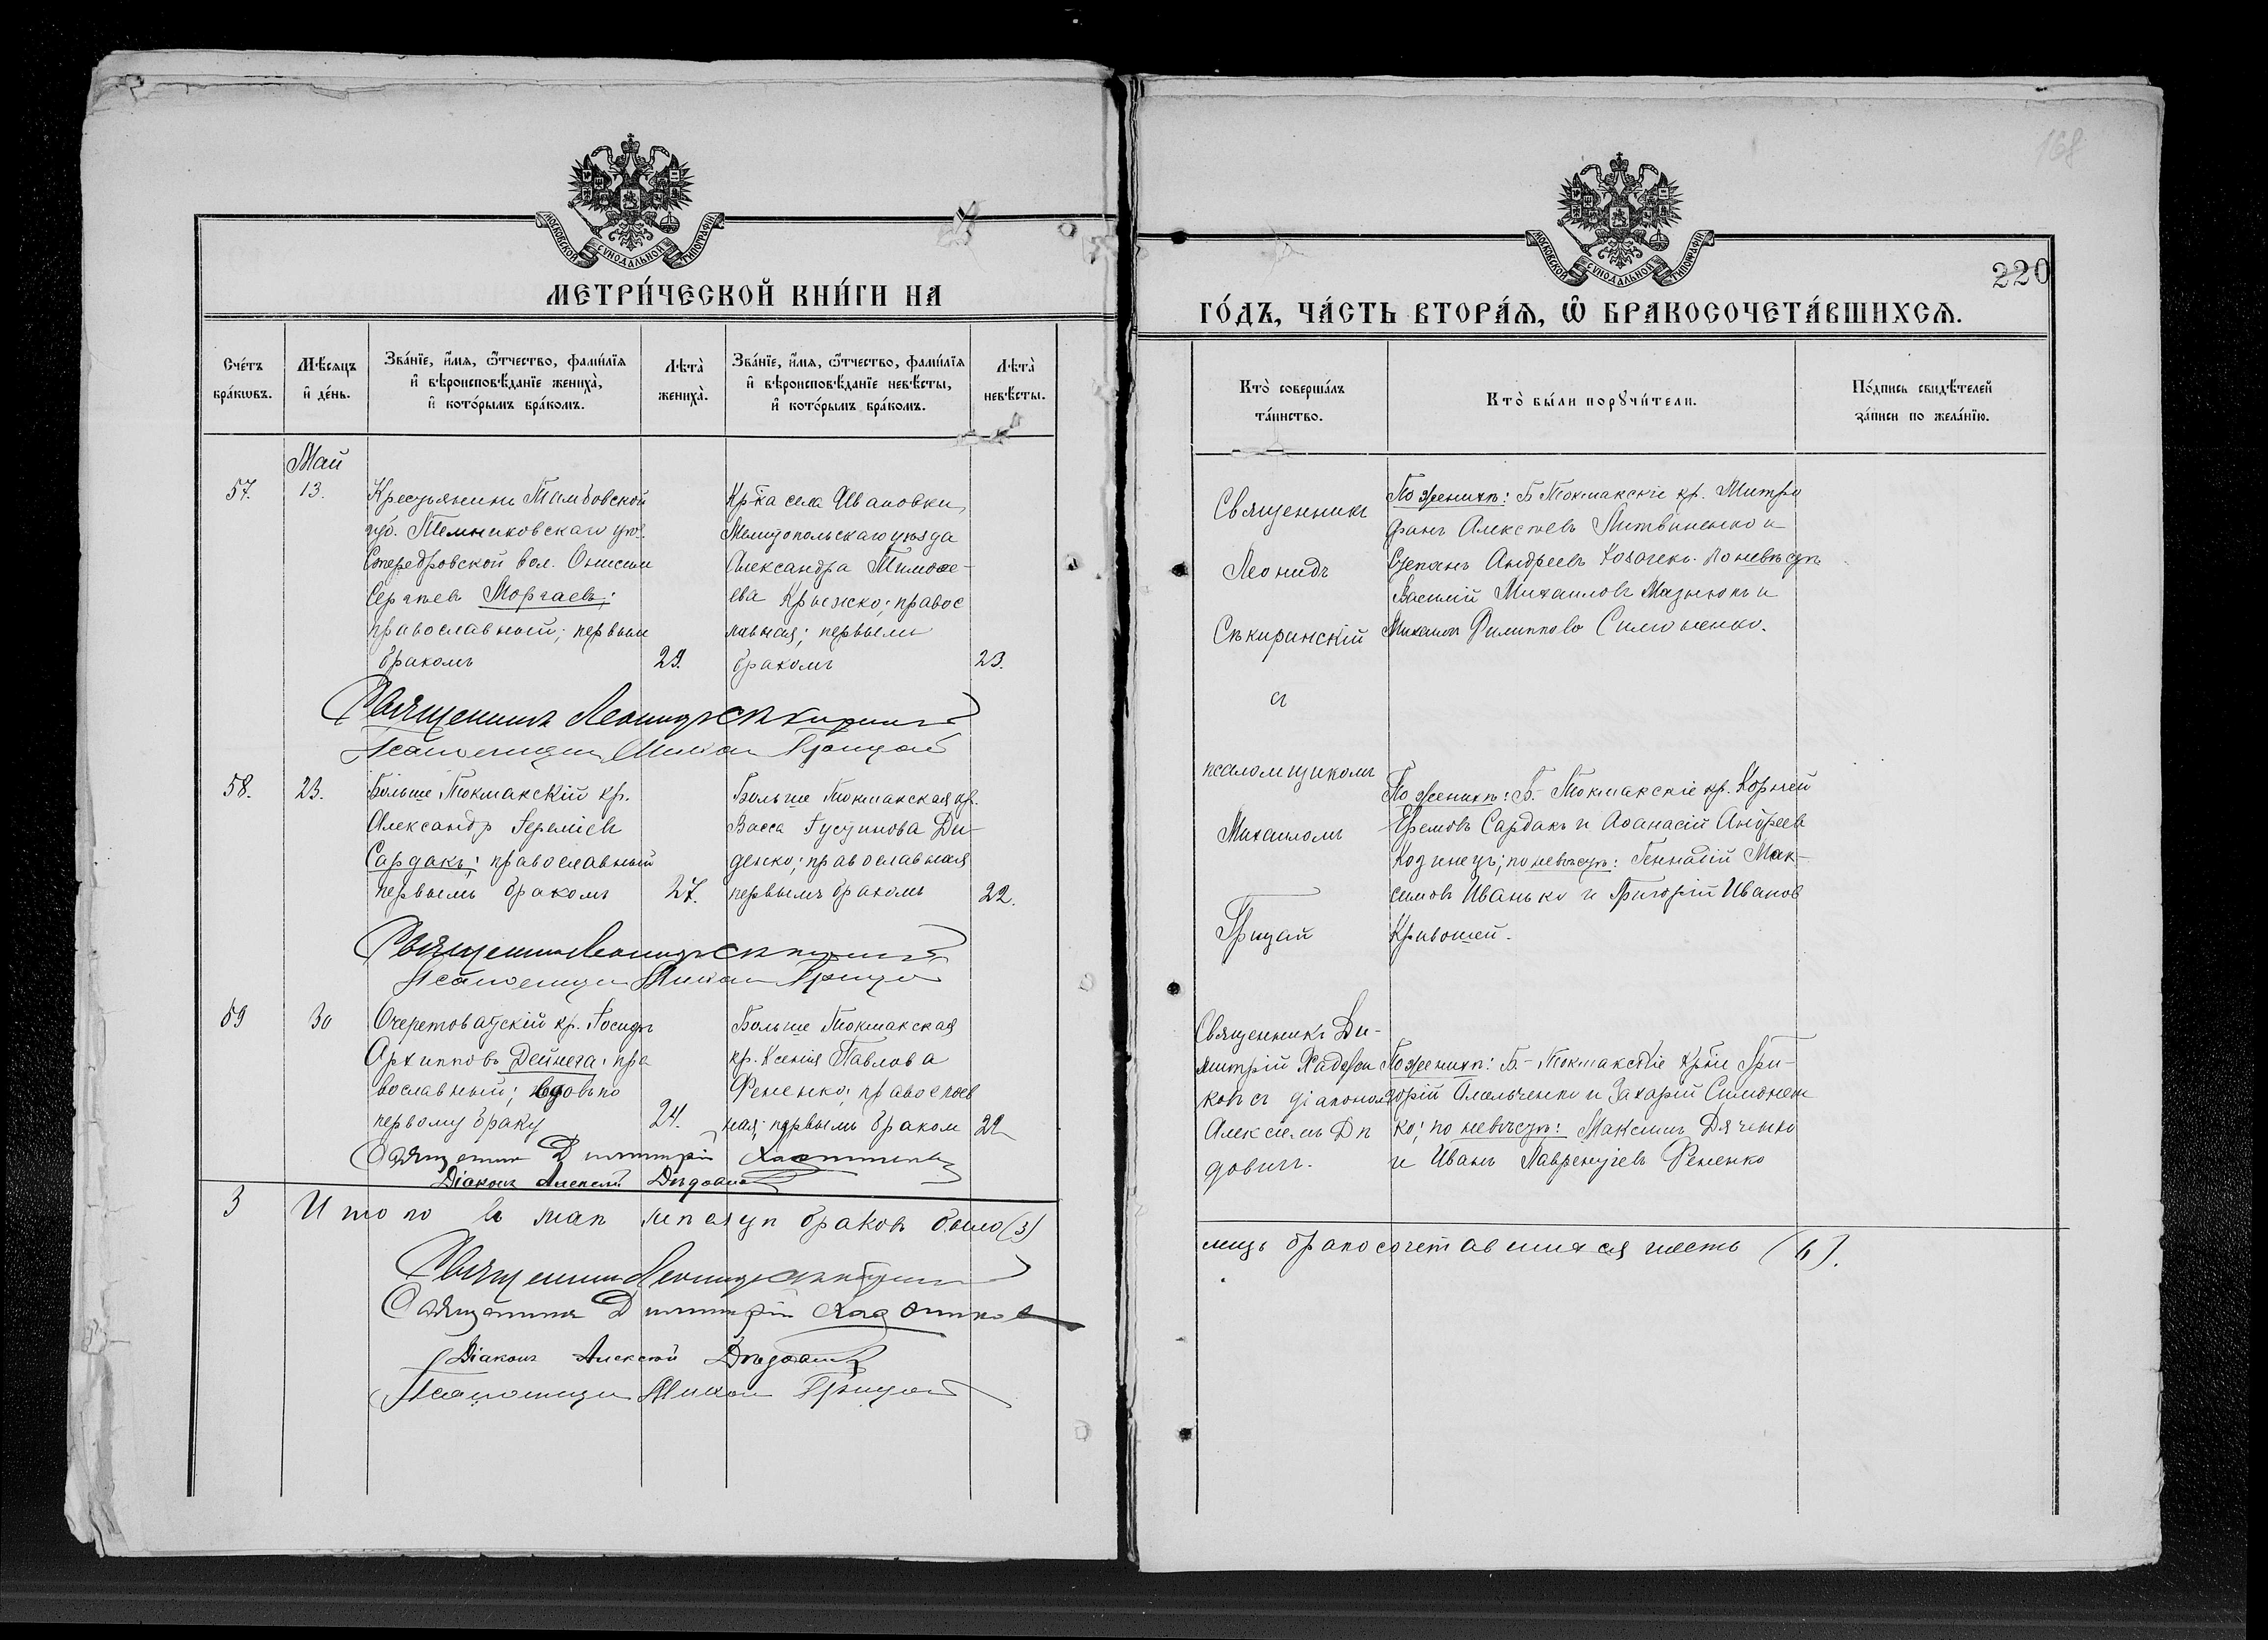 168
МОСКОВСКОЙ СѴНОДАЛЬНОЙ ТИПОГРАФІИ
МЕТРИ́ЧЕСКОЙ КНИ́ГИ НА
Сче́тъ бра́кѡвъ.
Мѣ́сѧцъ и҆ де́нь.
Зва́нїе, и҆́мѧ, ѻ҆́тчество, фами́лїѧ
и҆ вѣроисповѣ́данїе жениха̀,
и҆ кото́рымъ бра́комъ.
Лѣта̀ жениха̀.
Зва́нїе, и҆́мѧ, ѻ҆́тчество, фами́лїѧ
и҆ вѣроисповѣ́данїе невѣ́сты,
и҆ кото́рымъ бра́комъ.
Лѣта̀ невѣ́сты.
Май
57.
13.
Крестьянинъ Тамбовской
губ. Темниковскаго уѣз.
вол. Онисим
Сергѣевъ Моргаевъ;
православный; первым
бракомъ
29.
Кр-ка села Ивановки,
Мелитопольскаго уѣзда
Александра Тимоѳе-
ева Крыжко; правос
лавная; первымъ
бракомъ
23.
Священникъ Леонидъ Сѣкиринскій
Псаломщикъ Михаил Грицай
58.
23.
Больше Токмакскій кр.
Александр Іереміевъ
Сардакъ; православный
первымъ бракомъ
27.
Больше Токмакская кр.
Васса Іустинова Ди-
денко; православная
первымъ бракомъ
22.
Священникъ Леонидъ Сѣкиринскій
Псаломщикъ Михаил Грицай
59
30
Очеретоватскій кр. Іосифъ
Архиповъ Дейнега; пра
вославный; вдовъ по
первому браку
24.
Больше Токмакская
кр. Ксенія Павлова
Фененко; православ
ная; первымъ браком
22
Священникъ Димитрій
Діаконъ Алексѣй Дѣдовичъ
3
Итого въ маѣ мѣсяцѣ браковъ было (3)
Священникъ Леонидъ Сѣкиринскій
Священникъ Димитрій
Діаконъ Алексѣй Дѣдовичъ
Псаломщикъ Михаил Грицай
МОСКОВСКОЙ СѴНОДАЛЬНОЙ ТИПОГРАФІИ
220
ГО́ДЪ, ЧА́СТЬ ВТОРА́Ѧ, Ѡ҆ БРАКОСОЧЕТА́ВШИХСѦ.
Кто̀ соверша́лъ
та́инство.
Кто̀ бы́ли порꙋчи́тели.
По́дпись свидѣ́телей
за́писи по жела́нїю.
Священникъ
Леонидъ
Сѣкиринскій
съ
псаломщикомъ
Михаиломъ
Грицай
По женихѣ: Б Токмакскіе кр. Митро
фанъ Алексѣевъ Литвиненко и
Степанъ Андреевъ по невѣстѣ
Василій Михаиловъ Мазнюкъ и
Михаил Филипповъ Симоненко.
По женихѣ: Б.-Токмакскіе кр. Корней
Еремовъ Сардакъ и Аѳанасій Андреев
Козинецъ; по невѣстѣ: Геннадій Мак-
симовъ Иванько и Григорій Иванов
Кривошей.
Священникъ Ди-
митрій
ковъ съ діакономъ
Алексѣемъ Дѣ
дович.
По женихѣ: Б.-Токмакскіе кр-не Гри-
горій Омельченко и Захарій Симонен
ко; по невѣстѣ: Максимъ Дяченко
и Иванъ Лаврентіевъ Фененко
лицъ бракосочетавшихся шесть (6).